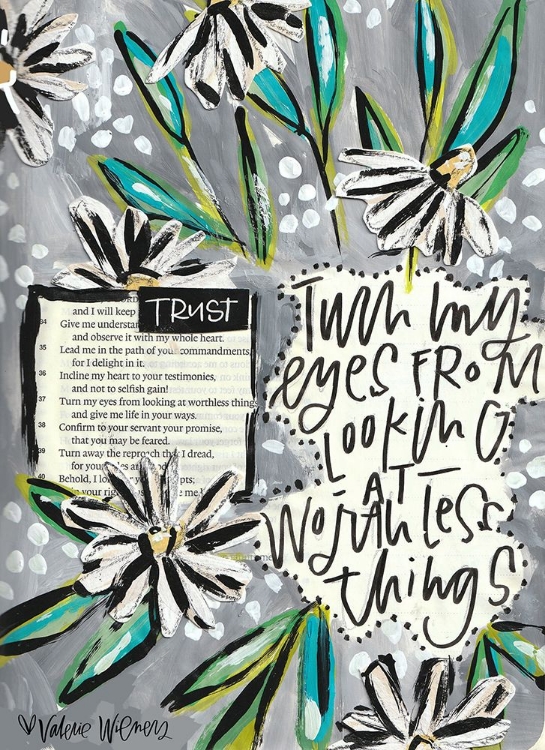 TRUST
and I will keep
34 Give me understan
and observe it with my whole heart.
35 Lead me in the path of your commandments,
for I delight in it.
36 Incline my heart to your testimonies,
and not to selfish gain!
37 Turn my eyes from looking at worthless things
and give me life in your ways.
38 Confirm to your servant your promise,
that you may be feared.
39 Turn away the reproach that I dread,
for your
40 Behold, I
in your me
Turn my
eyes FROM
LOOKING
- AT -
Worthless
things
Valerie Wieners